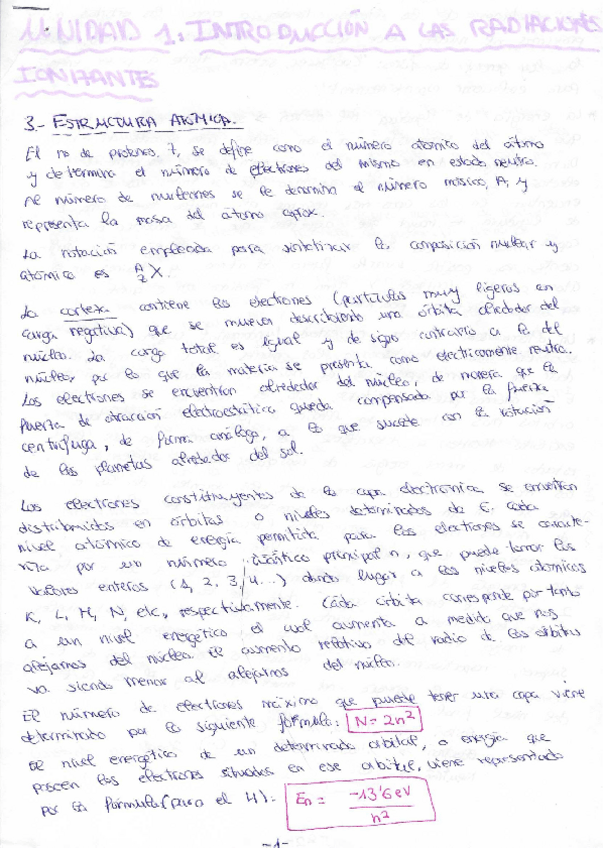 UNIDAD 1. INTRODUCCIÓN A LAS RADIACIONES
IONIZANTES
3.- ESTRUCTURA ATÓMICA.
El nº de protones, Z, se define como el número atómico del átomo
y determina el número de electrones del mismo en estado neutro.
Al número de nucleones se le denomina el número másico, A, y
representa la masa del átomo aprox.
La notación empleada para sintetizar la composición nuclear y
atómica es A Z X.
La corteza contiene los electrones (partículas muy ligeras con
carga negativa) que se mueven describiendo una órbita alrededor del
núcleo. La carga total es igual y de signo contrario a la del
núcleo, por lo que la materia se presenta como eléctricamente neutra.
Los electrones se encuentran alrededor del núcleo, de manera que la
fuerza de atracción electrostática queda compensada por la fuerza
centrífuga, de forma análoga, a lo que sucede con la rotación
de los planetas alrededor del sol.
Los electrones constituyentes de la capa electrónica se encuentran
distribuidos en órbitas o niveles determinados de E. Cada
nivel atómico de energía permitida para los electrones se caracte-
riza por un número cuántico principal n, que puede tomar los
valores enteros (1, 2, 3, 4...) dando lugar a los niveles atómicos
K, L, M, N, etc, respectivamente. Cada órbita corresponde por tanto
a un nivel energético el cual aumenta a medida que nos
alejamos del núcleo. El aumento relativo del radio de las órbitas
va siendo menor al alejarnos del núcleo.
El número de electrones máximo que puede tener una capa viene
determinado por la siguiente fórmula: N = 2n²
El nivel energético de un determinado orbital, o energía que
poseen los electrones situados en ese orbital, viene representado
por la fórmula (para el H): En = -13'6 eV / n²
-1-